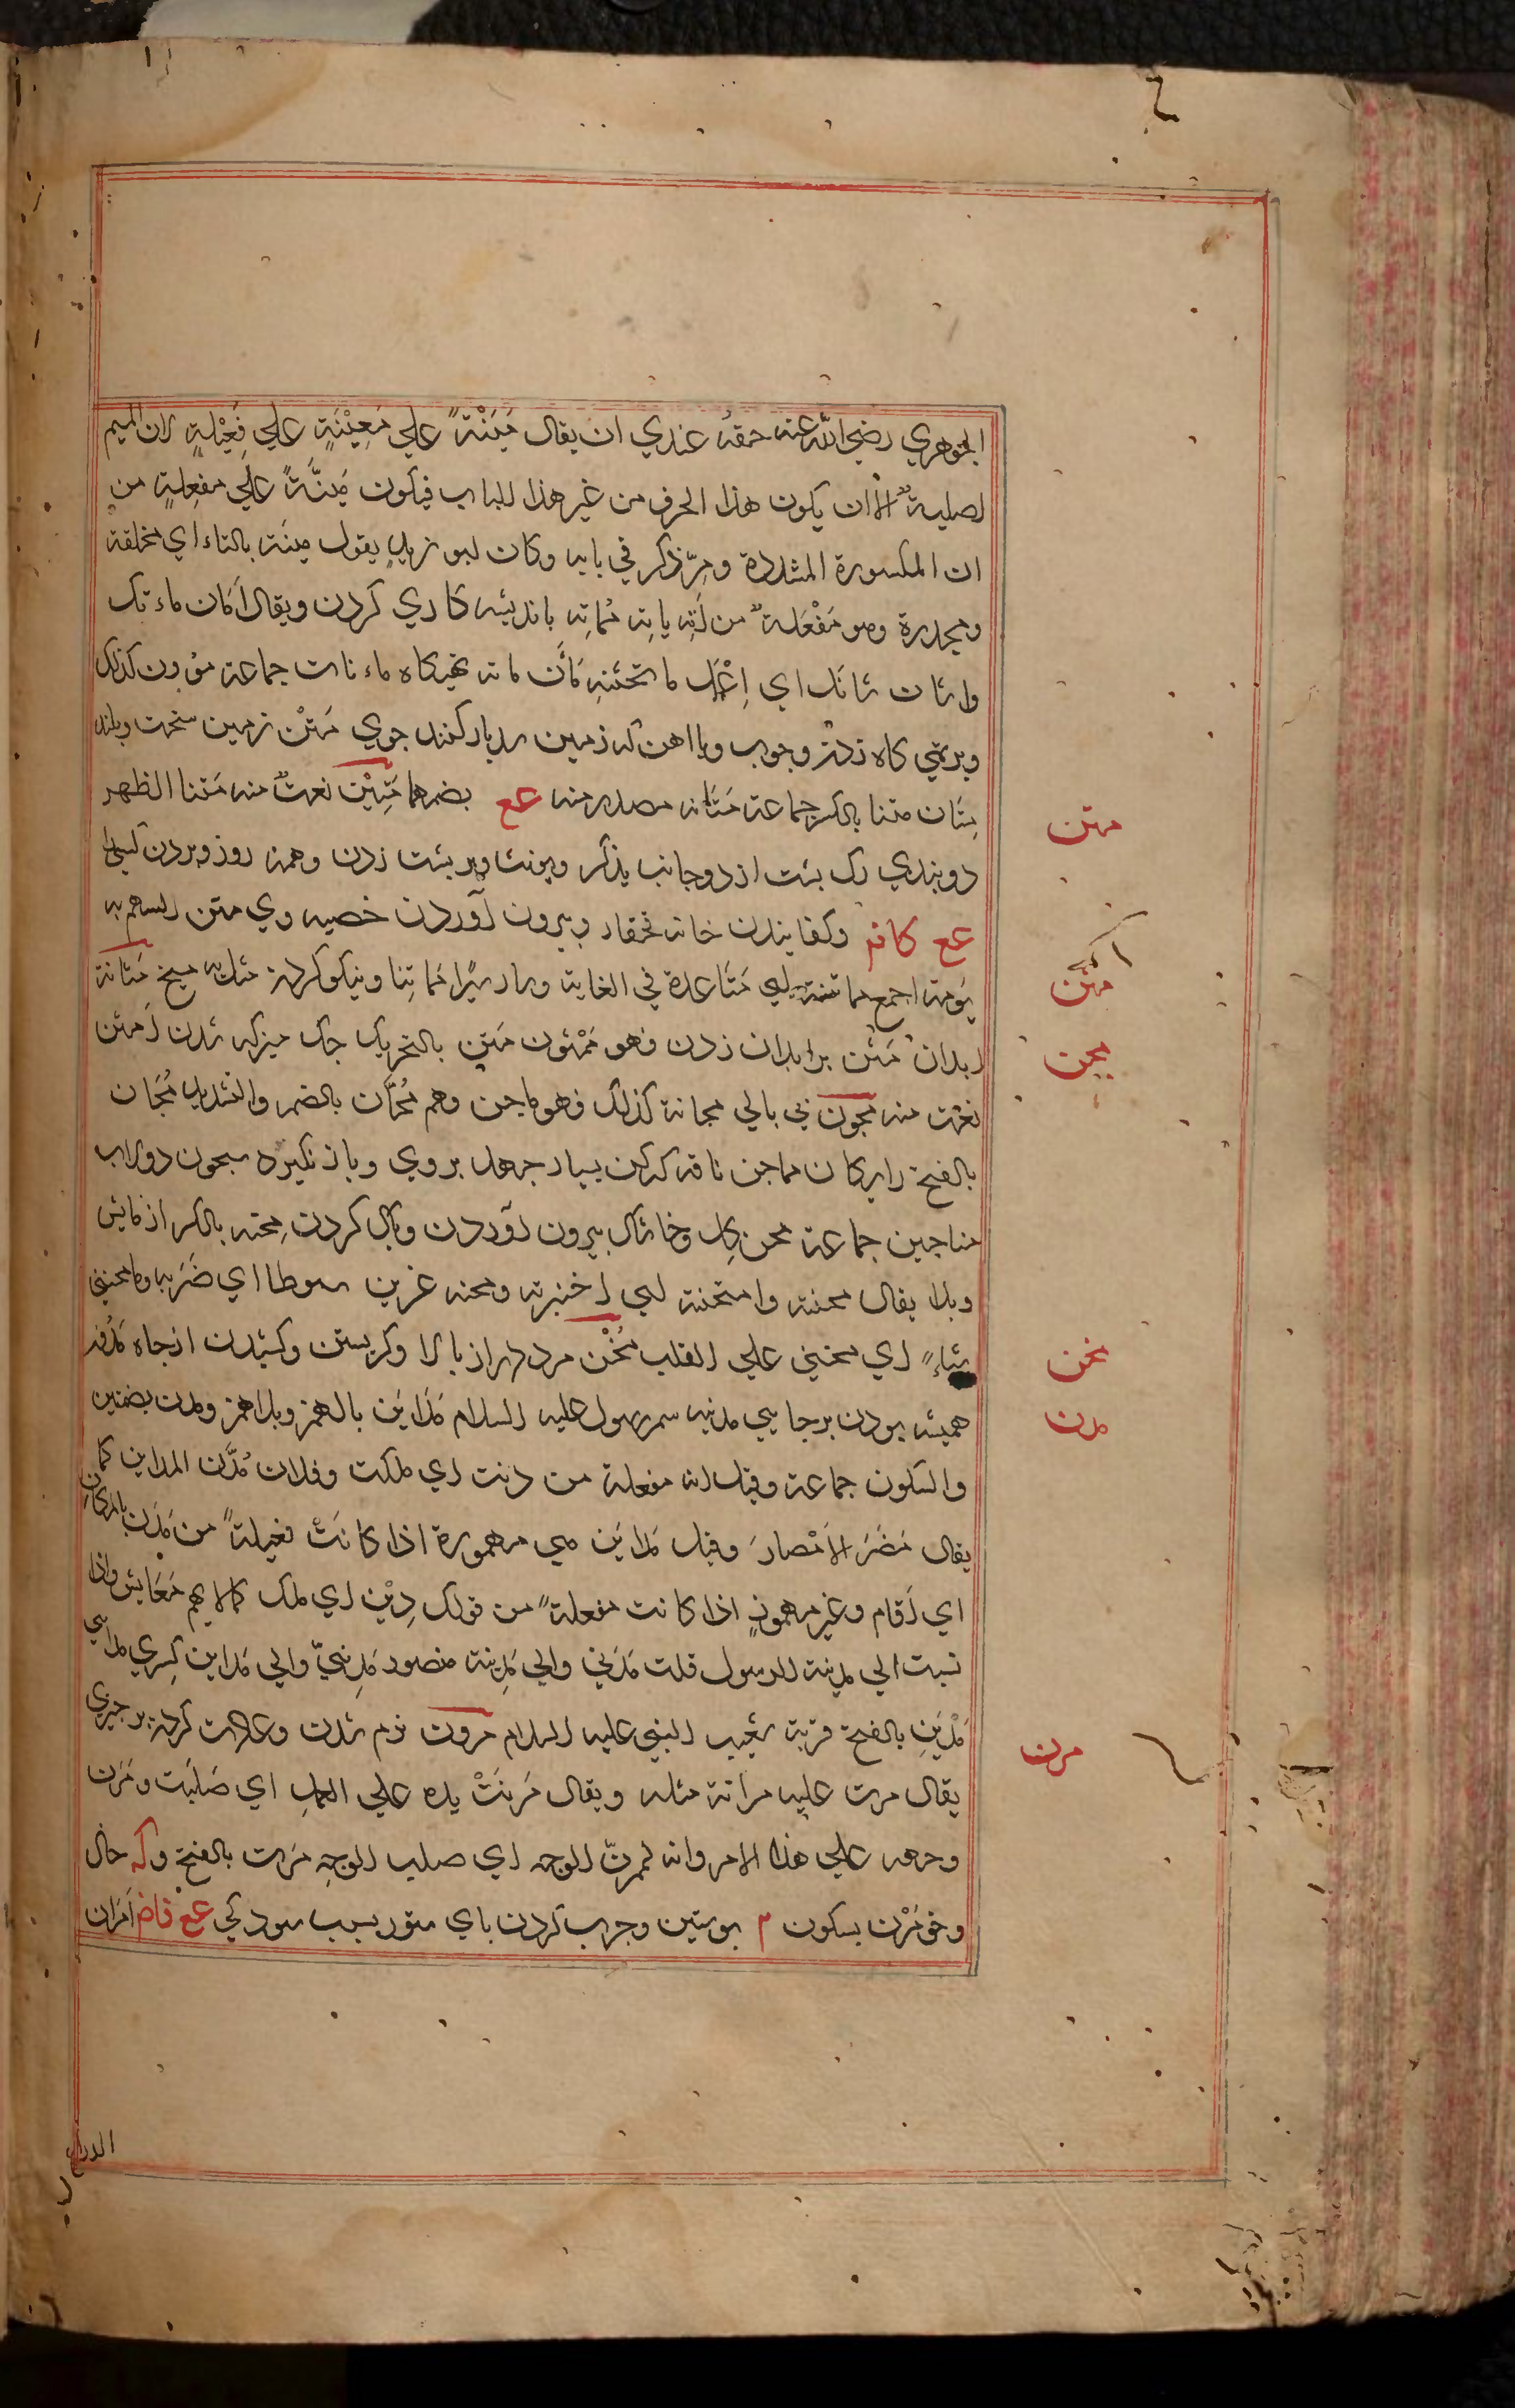 الجوهري رضي الله عنه حقه عندي ان يقال مَئِنْةً علي مَعِيْنَةٍ علي فَعِيْلةٍ لان الميم
اصليةٌ الا ان يكون هذا الحرف من غير هذا الباب فيكون مَئِنَّةً علي مفعِلةٍ من
ان المكسورة المشددة ومرّ ذكر في بابه وكان ابو زيد يقول مئتة بالتاء اي مخلقة
ومجدرة وهو مَفْعَلةٌ من اَتّه ياته مُماته باندیشه كاري كردن ويقال اَمان ماءنك
واشان شانك اي اِعْمَل ما تحسنه مَأن مانه تهیكاه ماءنات جماعة مؤون كذلك
وبرتهي كاه زدن وچوب ويا اهن كه زمين بدیار كنند جوي مَتْن زمین سخت وبلند
مِتَان متنا بالكسر جماعة مَتَانه مصدر منه عع بضمهما مَتِيْن نعتٌ منه مَتنا الظهر
دو بندي رك بشت از دو جانب يذكر ويونث وبر بشت زدن وهمه روز وبردن كسيرا
عع كافه وكفانيدن خانه وبيرون آوردن خصيه وي متن السهم به
يومه اجمع مماتنة اي مَتَاعدة في الغاية ومار سَيْرا مُماتِنا ونيكو كرده مثل به سيخ مَثانة
ابدان مَثْن برابدان زدن فهو مَمْثون مَثِن بالتحريك جك ميزكه شدن اَمثن
نعت منه مجون بي باكي مجانة كذلك فهو ماجن وهم مُجَّان بالضم والتشديد مُجَان
بالفتح رايكان مماجن ناقه كه كهن بسيار جهد بروي وباز نكيرد منجنون دولاب
مناجين جماعة محن كِل وخاشاك بيرون آوردن وپاك كردن مِحنه بالكسر ازمايش
وبلا يقال محنته وامتحنته اي اختبرته ومحنه عشرين سوطا اي ضَرَبه وما محنيني
شِيْاءً اي محنيني علي القلب مُخْن مرد دراز بالا وكريستن وكشيدن از چاه مُدُون
هميشه بودن برجايي مدينه سمر رسول عليه السلام مَدَايَن بالهمز وبلاهمز ومدن بضمتين
والسكون جماعة وقيل انه مفعلة من دنت اي ملكت وفلان مُدَّن المداين كما
يقال مَضَّرَ الاَمْصارَ وقيل مَدايَن هي مهمورة اذا كانَتْ فعيلةً من مَدَن بالمكان
اي اَقام وغير مهموزٍ اذا كانت مفعلةً من قولك دِيْن اي ملك كمالا يهم مَعَايش واذا
نسبت الي مدينة الرسول قلت مَدَني والي مَدِينة منصور مَدِينيّ والي مَداين كِسري مدايني
مَدْيَنِ بالفتح قرية شعيب النبي عليه السلام مرون نرم شدن وعادت كرده برچيزي
يقال مرن عليه مرانة مثله ويقال مَرَنَتْ يده علي العملِ اي صَلُبَت ومَرَن
وجهه علي هذا الامر وانه لممرنّ الوجه اي صلب الوجهِ مَرن بالفتح وكه حال
وخو مَرْن بسكون م بوستين وچرب كردن پاي ستور بسبب سودكي عع قاضه اَمران
متن
مثن
مجن
مخن
مدن
مرن
الدراع